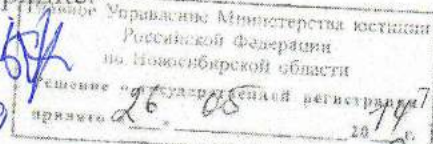 Главное Управление Министерства юстиции
Российской Федерации
по Новосибирской области
Решение о государственной регистрации
принято 26 05 2014 г.